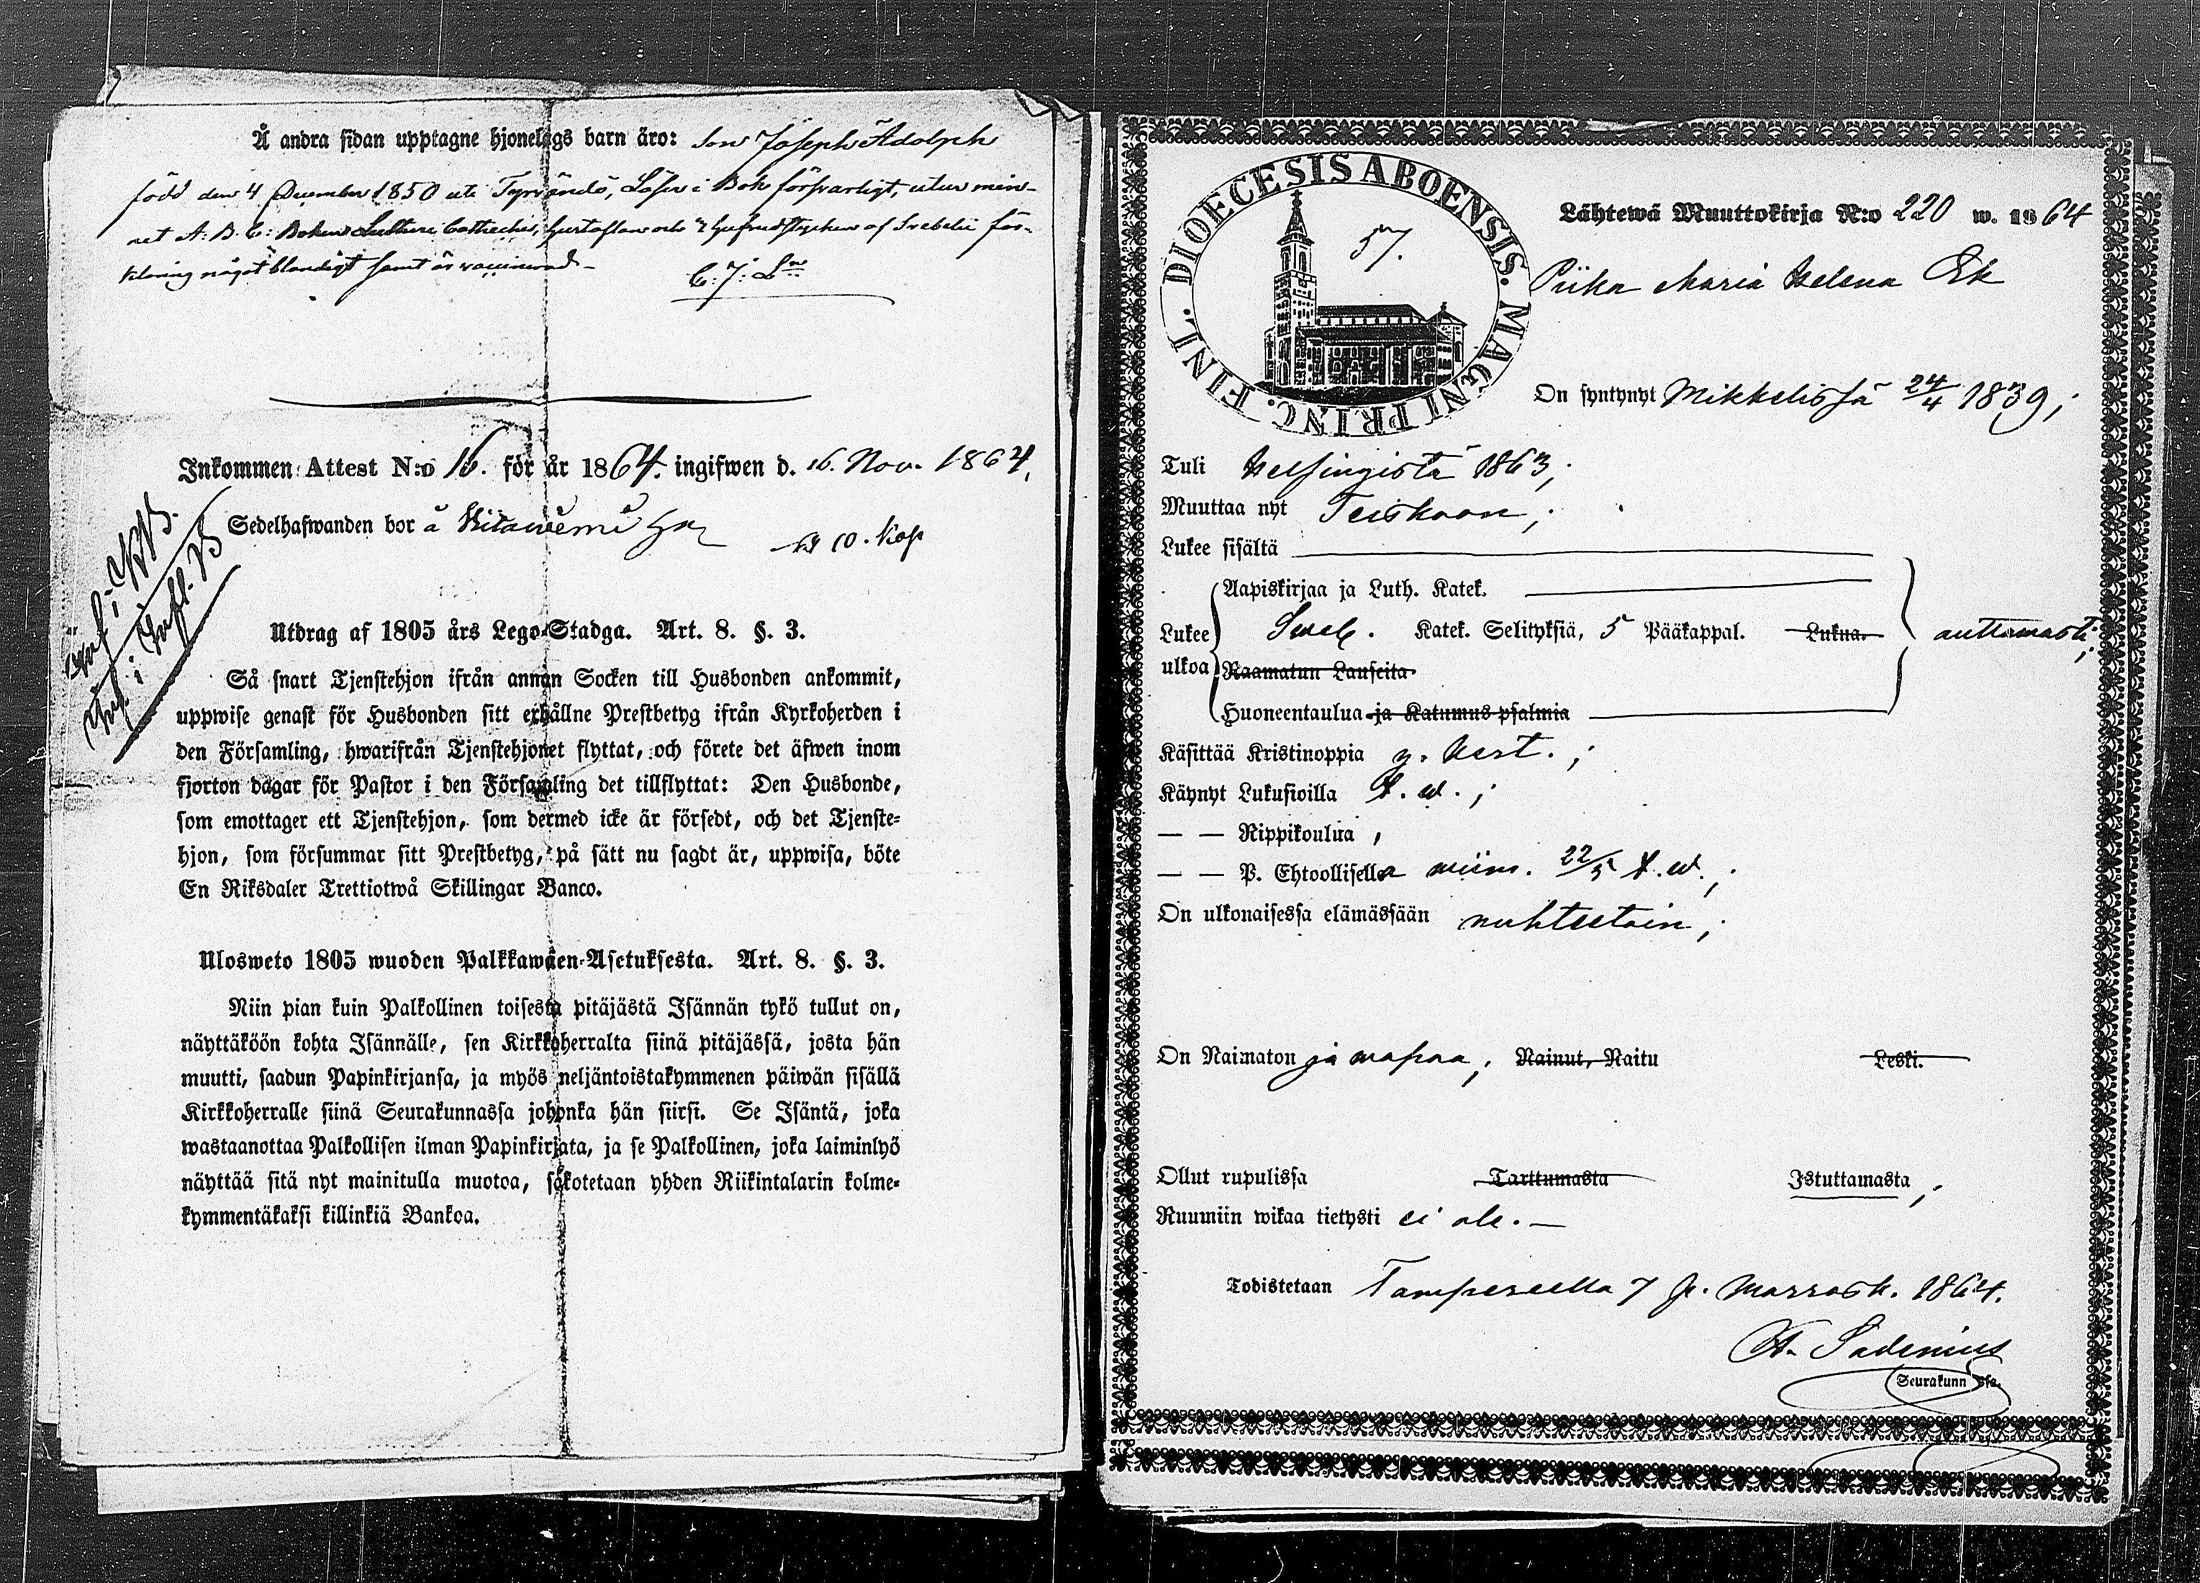 Å andra sidan upptagne hjonelags barn äro: Son Joseph Adolph
född den 4 December 1850 uti Tyrvändö, Läser i Bok försvarligt, utur min-
net A: B. C: Boken Lutheri Cateches, Hustaflan och 2 Hufvudstycken af Svebelii för-
klaring något blandigt samt är vaccinerad.-
C: J: L
Inkommen Attest N:o 16. för år 1864. ingifwen d. 16. Nov. 1864.
Sedelhafwanden bor å
10. Kop
Utdrag af 1805 års Lego-Stadga. Art. 8. §. 3.
Så snart Tjenstehjon ifrån annan Socken till Husbonden ankommit,
uppwise genast för Husbonden sitt erhållne Prestbetyg ifrån Kyrkoherden i
den Församling, hwarifrån Tjenstehjonet flyttat, och förete det äfwen inom
fjorton dagar för Pastor i den Församling det tillflyttat: Den Husbonde,
som emottager ett Tjenstehjon, som dermed icke är försedt, och det Tjenste-
hjon, som försummar sitt Prestbetyg, på sätt nu sagdt är, uppwisa, böte
En Riksdaler Trettiotwå Skillingar Banco.
Ulosweto 1805 wuoden Palkkawäen-Asetuksesta. Art. 8. §. 3.
Niin pian kuin Palkollinen toisesta pitäjästä Isännän tykö tullut on,
näyttäköön kohta Isännälle, sen Kirkkoherralta siinä pitäjässä, josta hän
muutti, saadun Papinkirjansa, ja myös neljäntoistakymmenen päiwän sisällä
Kirkkoherralle siinä Seurakunnassa johonka hän siirsi. Se Isäntä, joka
wastaanottaa Palkollisen ilman Papinkirjata, ja se Palkollinen, joka laiminlyö
näyttää sitä nyt mainitulla muotoa, sakotetaan yhden Riikintalarin kolme-
kymmentäkaksi killinkiä Bankoa.
DIOECESIS ABOENSIS. MAGNI PRINC. FINL.
57.
Lähtewä Muuttokirja N:o 220 w. 1864
Piika Maria Helena Ek
On syntynyt Mikkelissä 24/4 1839;
Tuli Helsingistä 1863;
Muuttaa nyt Teiskoon;
Lukee sisältä
Aapiskirjaa ja Luth. Katek.
Lukee Sveb. Katek. Selityksiä, 5 Pääkappal. Lukua. auttamasti;
ulkoa Raamatun Lauseita
Huoneentaulua ja Katumus-psalmia
Käsittää Kristinoppia y. kert.;
Käynyt Lukusioilla t. w.;
— — Rippikoulua,
— — P. Ehtoollisella wiim. 22/5 t. w.;
On ulkonaisessa elämässään nuhteetoin;
On Naimaton ja wapaa; Nainut, Naitu Leski.
Ollut rupulissa Tarttumasta Istuttamasta;
Ruumiin wikaa tietysti ei ole. —
Todistetaan Tampereella 7 p. Marrask. 1864.
Sadenius
Seurakunn ssa.